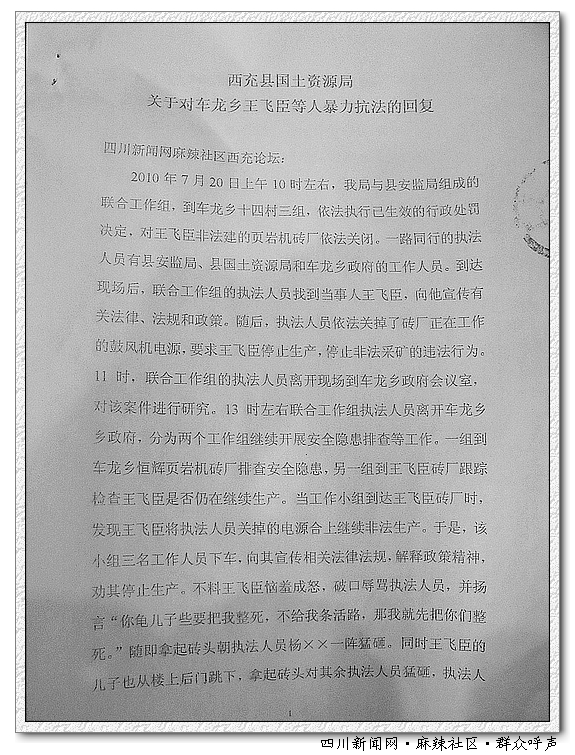 西充县国土资源局
关于对车龙乡王飞臣等人暴力抗法的回复
四川新闻网麻辣社区西充论坛：
2010 年 7 月 20 日上午 10 时左右，我局与县安监局组成的
联合工作组，到车龙乡十四村三组，依法执行已生效的行政处罚
决定，对王飞臣非法建的页岩机砖厂依法关闭。一路同行的执法
人员有县安监局、县国土资源局和车龙乡政府的工作人员。到达
现场后，联合工作组的执法人员找到当事人王飞臣，向他宣传有
关法律、法规和政策。随后，执法人员依法关掉了砖厂正在工作
的鼓风机电源，要求王飞臣停止生产，停止非法采矿的违法行为。
11 时，联合工作组的执法人员离开现场到车龙乡政府会议室，
对该案件进行研究。13 时左右联合工作组执法人员离开车龙乡
乡政府，分为两个工作组继续开展安全隐患排查等工作。一组到
车龙乡恒辉页岩机砖厂排查安全隐患，另一组到王飞臣砖厂跟踪
检查王飞臣是否仍在继续生产。当工作小组到达王飞臣砖厂时，
发现王飞臣将执法人员关掉的电源合上继续非法生产。于是，该
小组三名工作人员下车，向其宣传相关法律法规，解释政策精神，
劝其停止生产。不料王飞臣恼羞成怒，破口辱骂执法人员，并扬
言“你龟儿子些要把我整死，不给我条活路，那我就先把你们整
死。”随即拿起砖头朝执法人员杨××一阵猛砸。同时王飞臣的
儿子也从楼上后门跳下，拿起砖头对其余执法人员猛砸，执法人
1
四川新闻网·麻辣社区·群众呼声